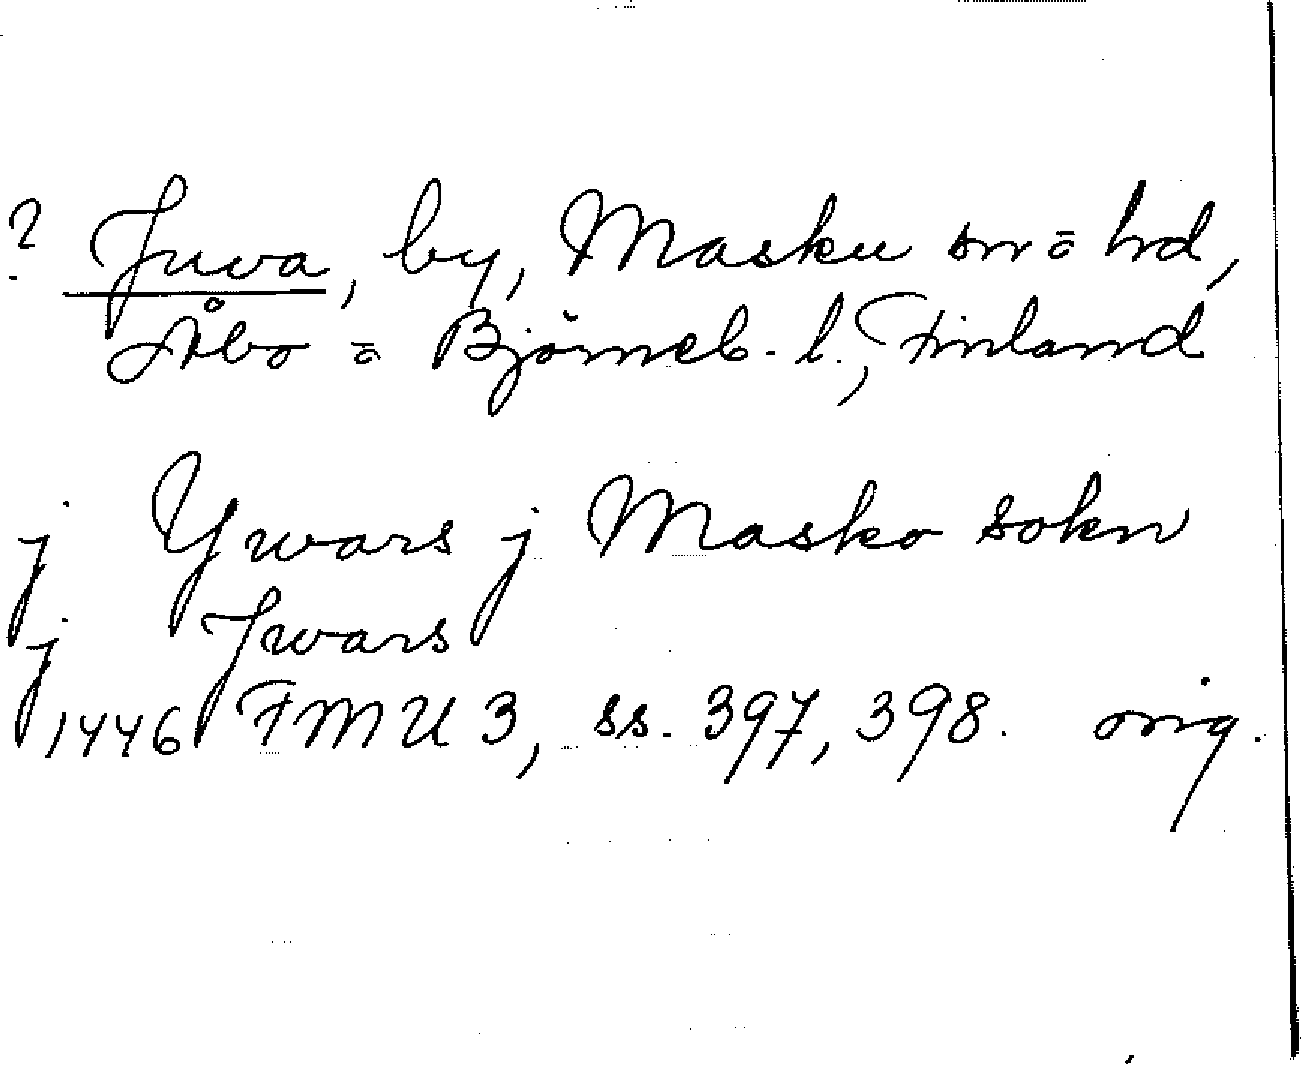 ? Juva, by, Masku sn o hd,
Åbo o Björneb. l., Finland
j Ywars j Masko sokn
j Jwars
1446 FMU 3, ss. 397, 398. orig.